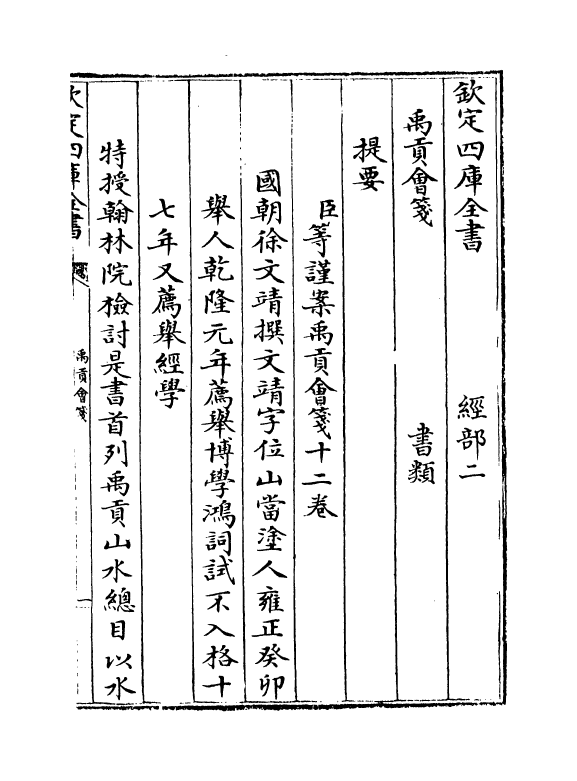 欽定四庫全書 經部二
禹貢會箋 書類
提要
臣等謹案禹貢會箋十二卷
國朝徐文靖撰文靖字位山當塗人雍正癸卯
舉人乾隆元年薦舉博學鴻詞試不入格十
七年又薦舉經學
特授翰林院檢討是書首列禹貢山水總目以水
欽定四庫全書
禹貢會箋
一